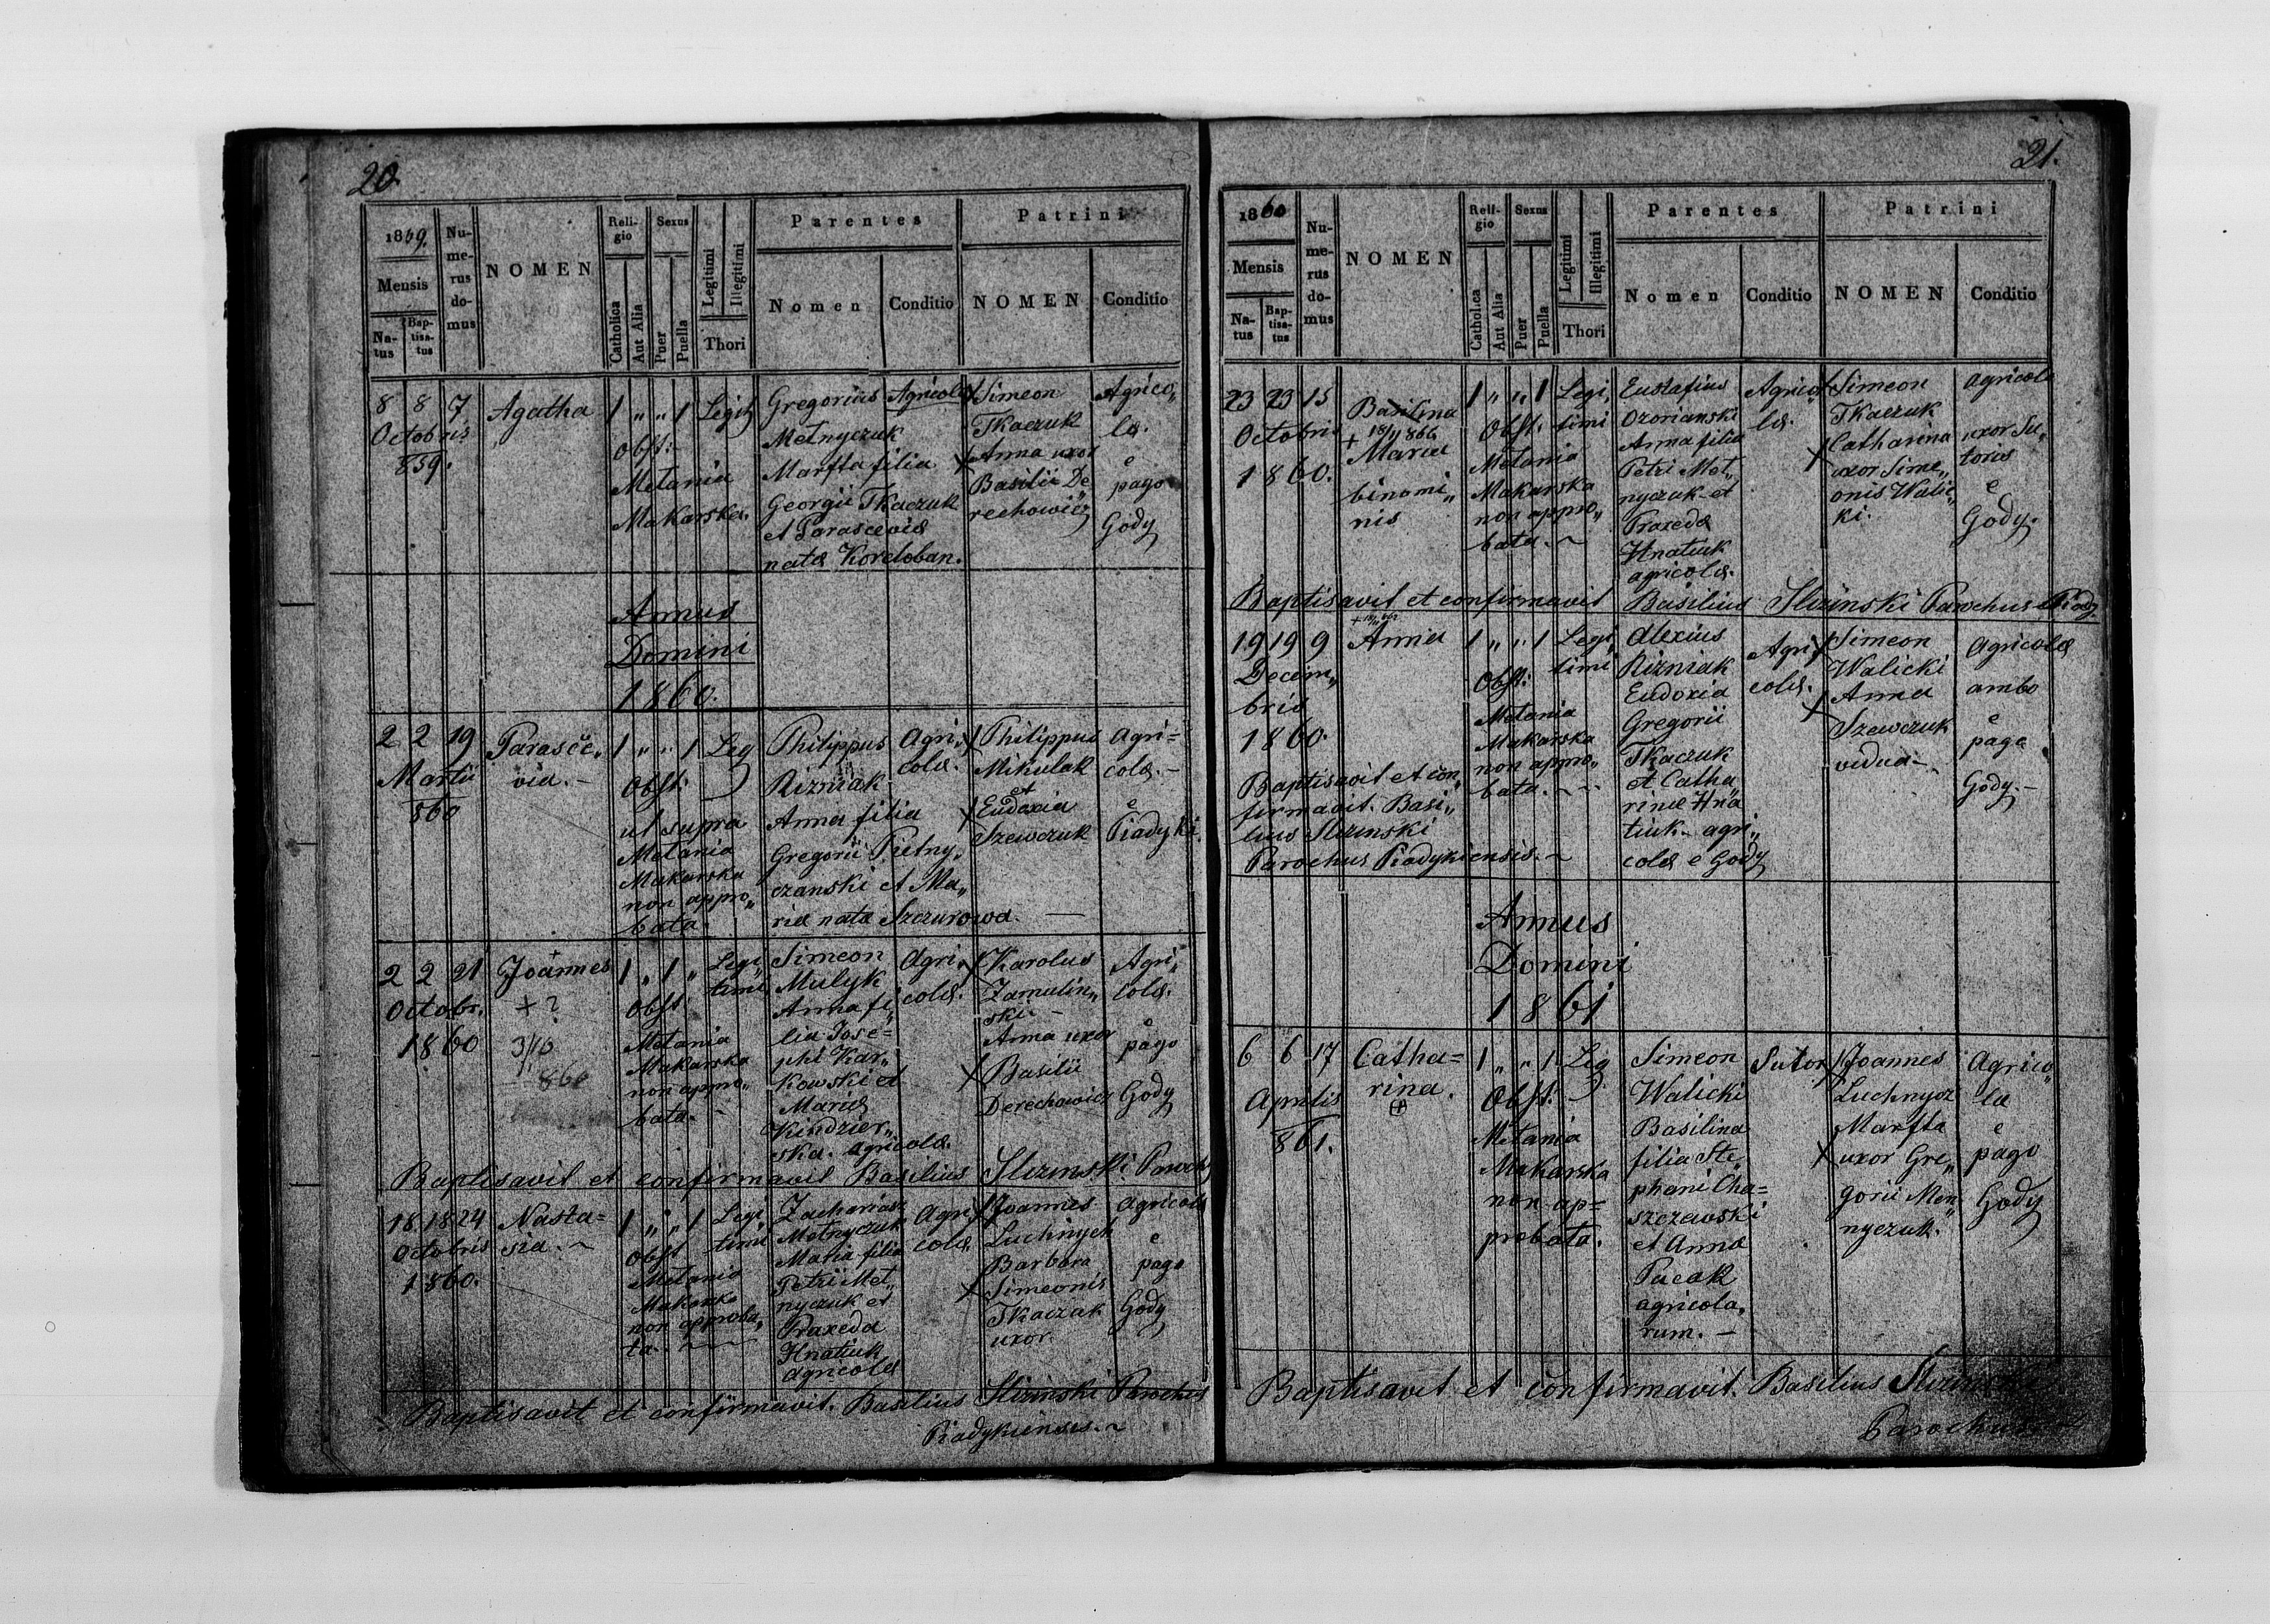 20.
1859.
Mensis
Na-
tus
Bap-
tisa-
tus
Nu-
me-
rus
do-
mus
NOMEN
Reli-
gio
Catholica
Aut Alia
Sexus
Puer
Puella
Legitimi
Illegitimi
Thori
Parentes
Nomen
Conditio
Patrini
NOMEN
Conditio
8 8 7
Octobris
859.
Agatha
1 " " 1 Legit
Obst:
Metania
Makarska.
Gregorius
Metnyczuk
Marfta filia
Georgii Tkaczuk
et Parascevia
nata Koreloban.
Agricola
Simeon
Tkaczuk
Anna uxor
Basilii De„
rechowicz
Agrico„
la.
e
pago
Gody
Annus
Domini
1860.
2 2 19
Martii
860
Parasce„
via. –
1 " " 1 Leg
Obst:
ut supra
Metania
Makarska
non appro„
bata.
Philippus
Rizniak
Anna filia
Gregorii Pretny„
czanski et Ma„
ria nata Szczurowa. —
Agri„
cola.
Philippus
Mikulak
et
Eudoxia
Szewczuk
Agri=
cola. –
e
Piadyki.
2 2 21
Octobr.
1860
Joannes
+ ?
3/10
860
1 „ 1 „ Legi„
timi
Obst
Metania
Makarska
non appro„
bata. –
Simeon
Mulyk
Anna fi„
lia Jose=
phi Kar„
kowski et
Maria
Kindzier„
ska. agricola.
Agri„
cola.
Karolus
Zamulin„
ski –
Anna uxor
Basilii
Derechowicz
Agri„
cola.
e
pago
Gody
Baptisavit et confirmavit Basilius Slizinski. Paroch
18 18 24
Octobris
1860.
Nasta=
sia. ~
1 „ „ 1 Legi
timi
Obst
Metania
Makarska
non approba„
ta. ~
Zacharias
Metnyczuk
Maria filia
Petri Met„
nyczuk et
Praxeda
Hnatiuk
agricola
Agri„
cola
Joannes
Luchnych
Barbara
Simeonis
Tkaczak
uxor.
Agricola
e
pago
Gody
Baptisavit et confirmavit. Basilius Slizinski Parochus
Piadykiensis. ~
21.
1860
Mensis
Na-
tus
Bap-
tisa-
tus
Nu-
me-
rus
do-
mus
NOMEN
Reli-
gio
Catholica
Aut Alia
Sexus
Puer
Puella
Legitimi
Illegitimi
Thori
Parentes
Nomen
Conditio
Patrini
NOMEN
Conditio
23 23 15
Octobris
1860.
Basilina
+ 18/11 866
Maria
binomi„
nis
1 " " 1 Legi„
timi
Obst:
Metania
Makarska
non appro„
bata. ~
Eustafius
Ozorianski
Anna filia
Petri Met„
nyczuk et
Praxeda
Hnatiuk
agricola.
Agrico„
la.
Simeon
Tkaczuk
Catharina
uxor Sime„
onis Walic„
ki.
Agricola
uxor Su„
toris
e
Gody.
Baptisavit et confirmavit Basilius Slizinski Parochus Piady.
19 19 9
Decem„
bris
1860.
Anna
1 " " 1 Legi„
timi
Obst:
Metania
Makarska
non appro„
bata. ~
Alexius
Rizniak
Eudoxia
Gregorii
Tkaczuk
et Catha„
rina Hna„
tiuk – agri„
cola e Gody
Agri„
cola.
Simeon
Walicki
Anna
Szewczuk
vidua –
Agricola
ambo
e
pago
Gody. –
Baptisavit et con„
firmavit. Basi„
lius Slizinski
Parochus Piadykiensis. ~
Annus
Domini
1861
6 6 17
Aprilis
861.
Catha=
rina.
1 „ „ 1 Leg
Obst:
Metania
Makarska
non ap=
probata.
Simeon
Walicki
Basilina
filia Ste„
phani Cha=
szczewski
et Anna
Pacak
agricola„
rum. –
Sutor
Joannes
Luchnycz
Marfta
uxor Gre„
gorii Men„
nyczuk.
Agrico„
la
e
pago
Gody
Baptisavit et confirmavit. Basilius Slizinski
Parochus